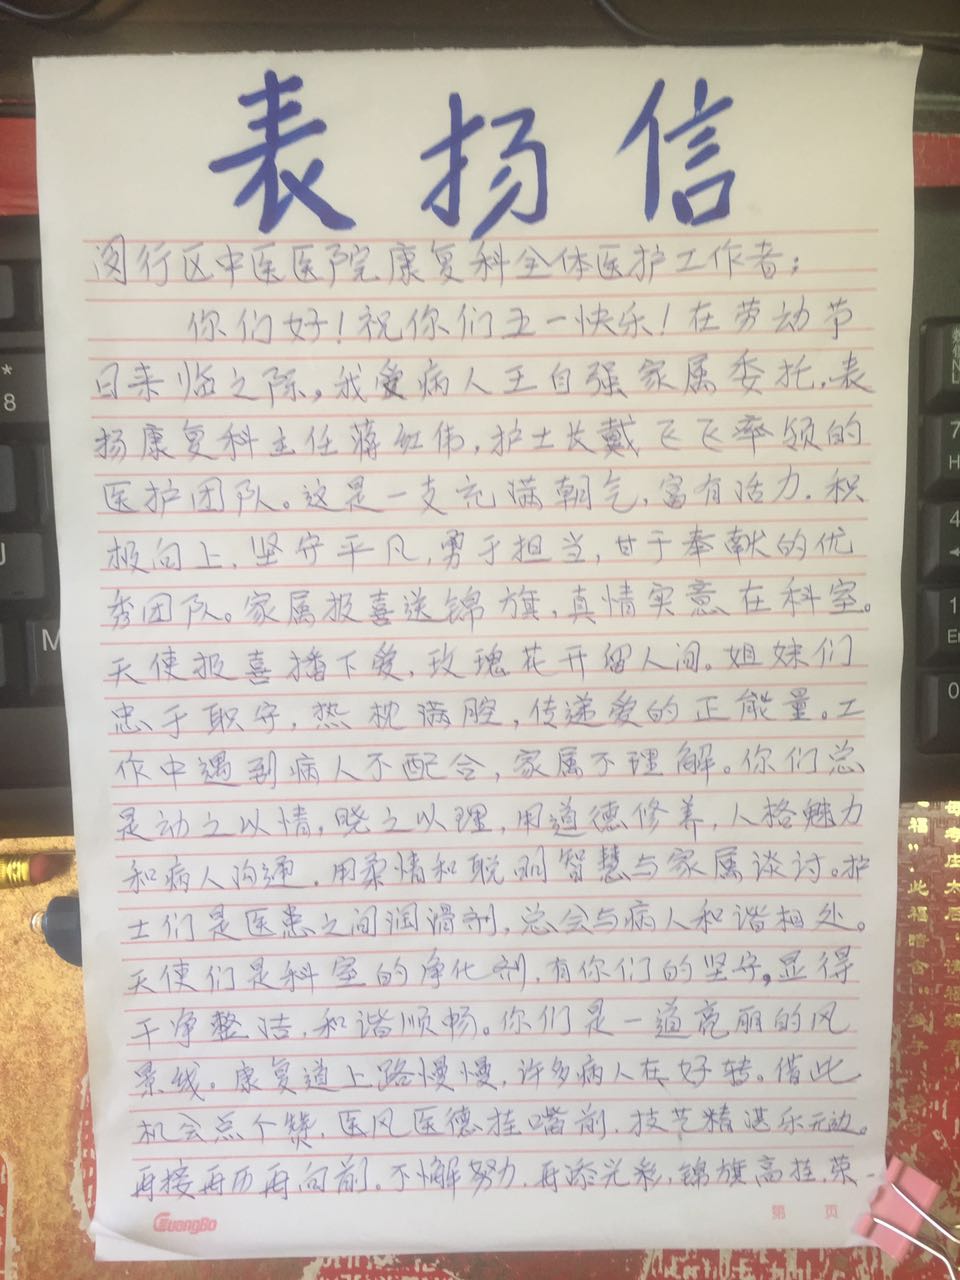 表扬信
闵行区中医医院康复科全体医护工作者：
你们好！祝你们五一快乐！在劳动节
日来临之际，我受病人王自强家属委托，表
扬康复科主任蒋红伟，护士长戴飞飞率领的
医护团队。这是一支充满朝气，富有活力，积
极向上，坚守平凡，勇于担当，甘于奉献的优
秀团队。家属报喜送锦旗，真情实意在科室。
天使报喜播下爱，玫瑰花开留人间。姐妹们
忠于职守，热忱满腔，传递爱的正能量。工
作中遇到病人不配合，家属不理解。你们总
是动之以情，晓之以理，用道德修养，人格魅力
和病人沟通，用柔情和聪明智慧与家属谈讨。护
士们是医患之间润滑剂，总会与病人和谐相处。
天使们是科室的净化剂，有你们的坚守，显得
干净整洁，和谐顺畅。你们是一道亮丽的风
景线。康复道上路慢慢，许多病人在好转。借此
机会点个赞，医风医德挂嘴前，技艺精湛乐无边。
再接再历再向前。不懈努力，再添光彩，锦旗高挂，荣
GuangBo
第 页
*
8
J
M
7
H
4
1
En
0